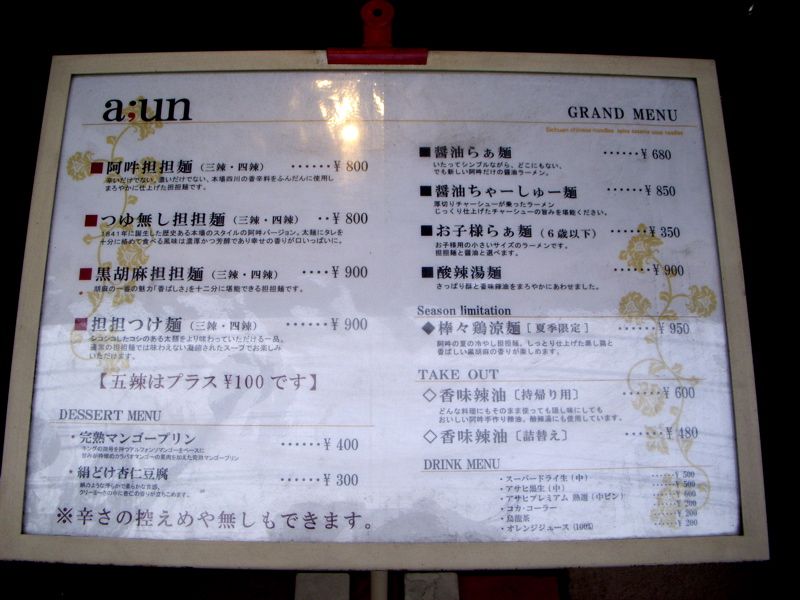 a;un
GRAND MENU
■阿吽担担麺（三辣・四辣）・・・・・・¥ 800
辛いだけでない、濃いだけでない、本場四川の香辛料をふんだんに使用し
まろやかに仕上げた担担麺です。
■つゆ無し担担麺（三辣・四辣）・・¥ 800
1841年に誕生した歴史ある本場のスタイルの阿吽バージョン。太麺にタレを
十分に絡めて食べる風味は濃厚かつ芳醇であり幸せの香りが口いっぱいに。
■黒胡麻担担麺（三辣・四辣）・・・・¥ 900
胡麻の一番の魅力「香ばしさ」を十二分に堪能できる担担麺です。
■担担つけ麺（三辣・四辣）・・・・・・¥ 900
シコシコしたコシのある太麺をより味わっていただける一品。
通常の担担麺では味わえない凝縮されたスープでお楽しみ
いただけます。
【五辣はプラス¥100です】
DESSERT MENU
・完熟マンゴープリン・・・・・・¥ 400
・絹どけ杏仁豆腐・・・・・・¥ 300
※辛さの控えめや無しもできます。
■醤油らぁ麺・・・・・・¥ 680
いたってシンプルながら、どこにもない、
でも新しい阿吽だけの醤油ラーメン。
■醤油ちゃーしゅー麺・・・・・・¥ 850
厚切りチャーシューが乗ったラーメン
じっくり仕上げたチャーシューの旨みを堪能ください。
■お子様らぁ麺（6歳以下）・・・・・・¥ 350
お子様用の小さいサイズのラーメンです。
担担麺と醤油と選べます。
■酸辣湯麺・・・・・・¥ 900
さっぱり酢と香味辣油をまろやかにあわせました。
Season limitation
◆棒々鶏涼麺［夏季限定］・・・・・・¥ 950
阿吽の夏の冷やし担担麺。しっとり仕上げた蒸し鶏と
香ばしい黒胡麻の香りが楽しめます。
TAKE OUT
◇香味辣油［持帰り用］・・・・・・¥ 600
どんな料理にもそのまま使っても隠し味にしても
おいしい阿吽手作り辣油。酸辣湯にも使用しています。
◇香味辣油［詰替え］・・・・・・¥ 480
DRINK MENU
・スーパードライ生（中）・・・・・・¥ 500
・アサヒ黒生（中）・・・・・・¥ 500
・アサヒプレミアム 熟選（中ビン）・・・・・・¥ 600
・コカ・コーラー・・・・・・¥ 200
・烏龍茶・・・・・・¥ 200
・オレンジジュース（100%）・・・・・・¥ 200